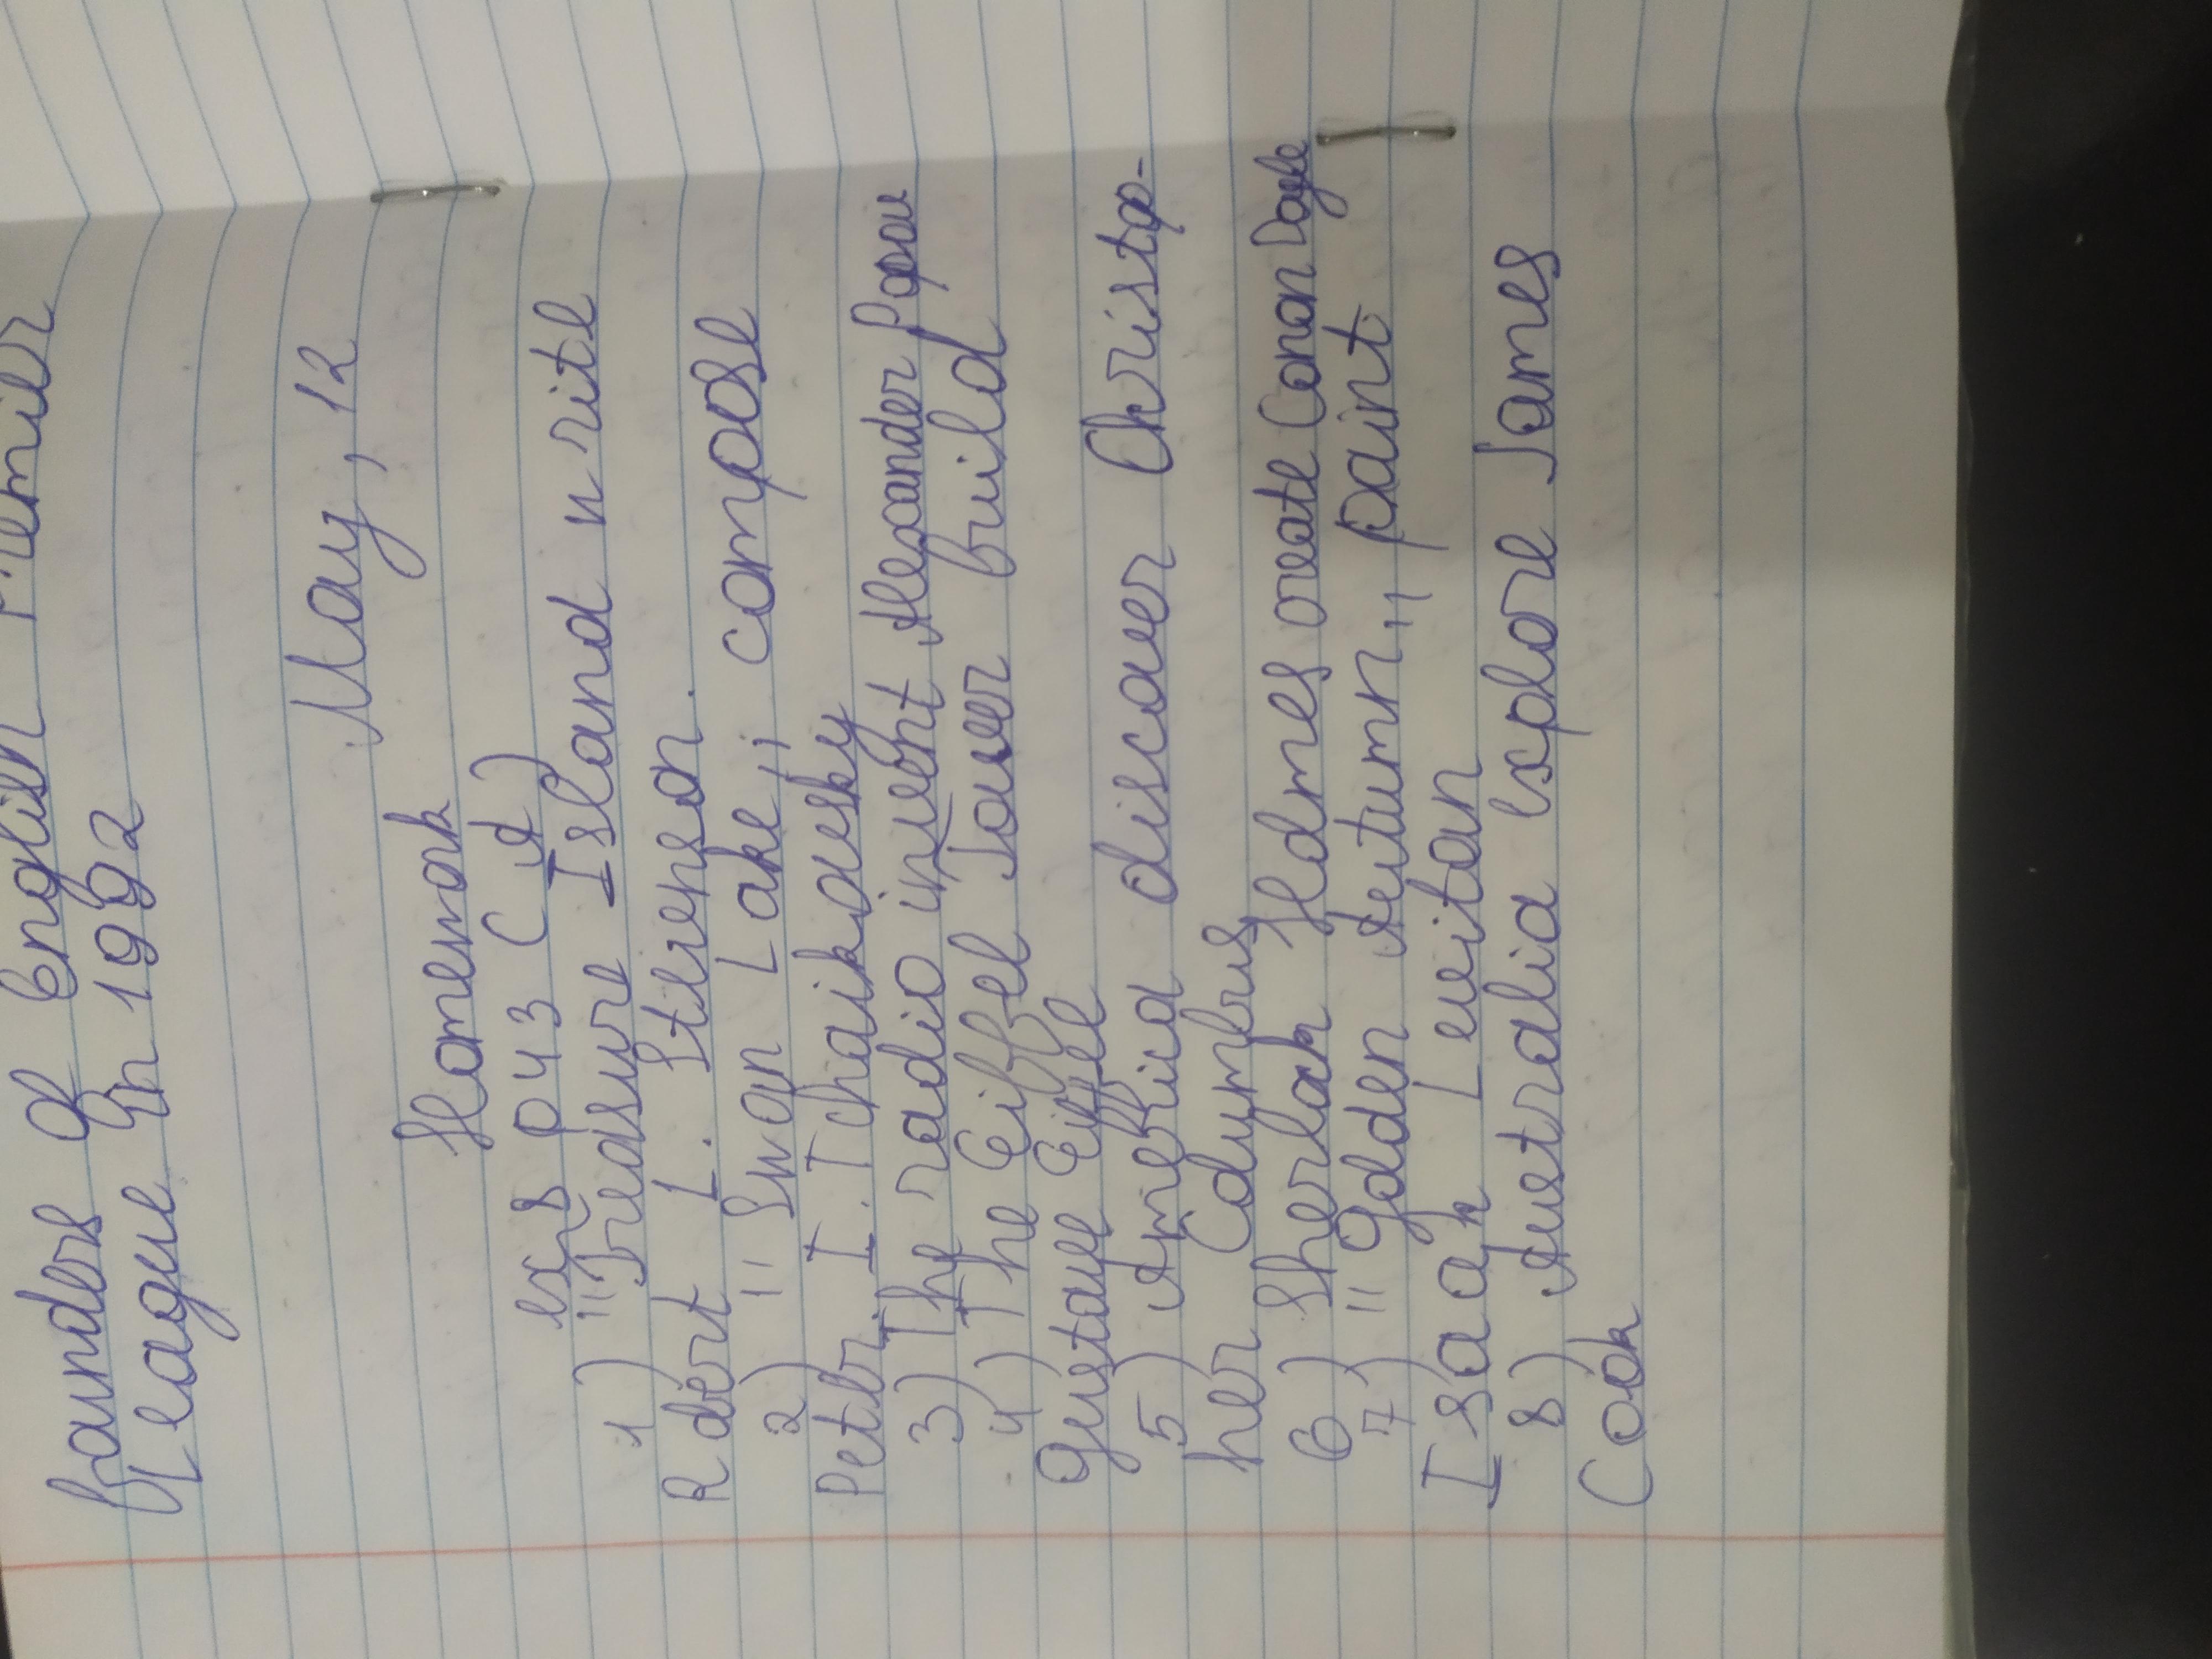 founders of English Premier
League in 1992
May, 12
Homework
ex 8 p 43 (A)
1) "Treasure Island write
Robert L. Stevenson.
2) "Swan Lake" compose
Peter I. Tchaikovsky
3) The radio invent Alexander Popov
4) The Eiffel Tower build
Gustave Eiffel
5) America discover Christop-
her Columbus
6) Sherlock Holmes create Conan Doyle
7) "Golden Autumn" paint
Isaak Levitan
8) Australia explore James
Cook